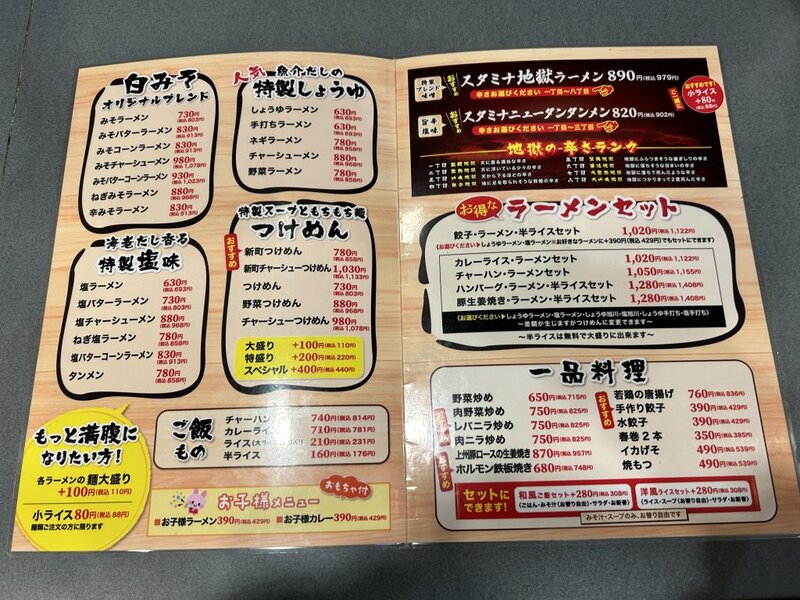 白みそ
オリジナルブレンド
みそラーメン 730円(税込803円)
みそバターラーメン 830円(税込913円)
みそコーンラーメン 830円(税込913円)
みそチャーシューメン 980円(税込1,078円)
みそバターコーンラーメン 930円(税込1,023円)
ねぎみそラーメン 880円(税込968円)
辛みそラーメン 830円(税込913円)
海老だし香る
特製塩味
塩ラーメン 630円(税込693円)
塩バターラーメン 730円(税込803円)
塩チャーシューメン 880円(税込968円)
ねぎ塩ラーメン 780円(税込858円)
塩バターコーンラーメン 830円(税込913円)
タンメン 780円(税込858円)
もっと満腹に
なりたい方!
各ラーメンの麺大盛り
+100円(税込110円)
小ライス80円(税込88円)
麺類ご注文の方に限ります
人気
魚介だしの
特製しょうゆ
しょうゆラーメン 630円(税込693円)
手打ちラーメン 630円(税込693円)
ネギラーメン 780円(税込858円)
チャーシューメン 880円(税込968円)
野菜ラーメン 780円(税込858円)
特製スープともちもち麺
つけめん
おすすめ
新町つけめん 780円(税込858円)
新町チャーシューつけめん 1,030円(税込1,133円)
つけめん 730円(税込803円)
野菜つけめん 880円(税込968円)
チャーシューつけめん 980円(税込1,078円)
大盛り +100円(税込110円)
特盛り +200円(税込220円)
スペシャル +400円(税込440円)
ご飯もの
チャーハン 740円(税込814円)
カレーライス 710円(税込781円)
ライス 210円(税込231円)
半ライス 160円(税込176円)
お子様メニュー
おもちゃ付
お子様ラーメン390円(税込429円)
お子様カレー390円(税込429円)
特製ブレンド味噌
おすすめ
スタミナ地獄ラーメン 890円(税込979円)
辛さお選びください 一丁目〜八丁目
旨辛塩味
おすすめ
スタミナニュータンタンメン 820円(税込902円)
辛さお選びください 一丁目〜三丁目
おすすめです!
ご一緒に
小ライス
+80円
(税込88円)
地獄の辛さランク
一丁目
二丁目
三丁目
四丁目
五丁目
六丁目
七丁目
八丁目
お得な
ラーメンセット
餃子・ラーメン・半ライスセット 1,020円(税込1,122円)
(お選びください▶しょうゆラーメン・塩ラーメン※お好きなラーメンに+390円(税込429円)でもセットにできます)
カレーライス・ラーメンセット 1,020円(税込1,122円)
チャーハン・ラーメンセット 1,050円(税込1,155円)
ハンバーグ・ラーメン・半ライスセット 1,280円(税込1,408円)
豚生姜焼き・ラーメン・半ライスセット 1,280円(税込1,408円)
(お選びください▶しょうゆラーメン・塩ラーメン・しょうゆ旭川・塩旭川・しょうゆ手打ち・塩手打ち)
〜差額が生じますがつけめんに変更できます〜
〜半ライスは無料で大盛りに出来ます〜
一品料理
野菜炒め 650円(税込715円)
肉野菜炒め 750円(税込825円)
レバニラ炒め 750円(税込825円)
肉ニラ炒め 750円(税込825円)
上州豚ロースの生姜焼き 870円(税込957円)
ホルモン鉄板焼き 680円(税込748円)
おすすめ
おすすめ
若鶏の唐揚げ 760円(税込836円)
手作り餃子 390円(税込429円)
水餃子 390円(税込429円)
春巻2本 350円(税込385円)
イカげそ 490円(税込539円)
焼もつ 490円(税込539円)
おすすめ
セットに
できます!
和風ご飯セット+280円(税込308円)
(ごはん・みそ汁(お替り自由)・サラダ・お新香)
洋風ライスセット+280円(税込308円)
(ライス・スープ(お替り自由)・サラダ・お新香)
みそ汁・スープのみ、お替り自由です